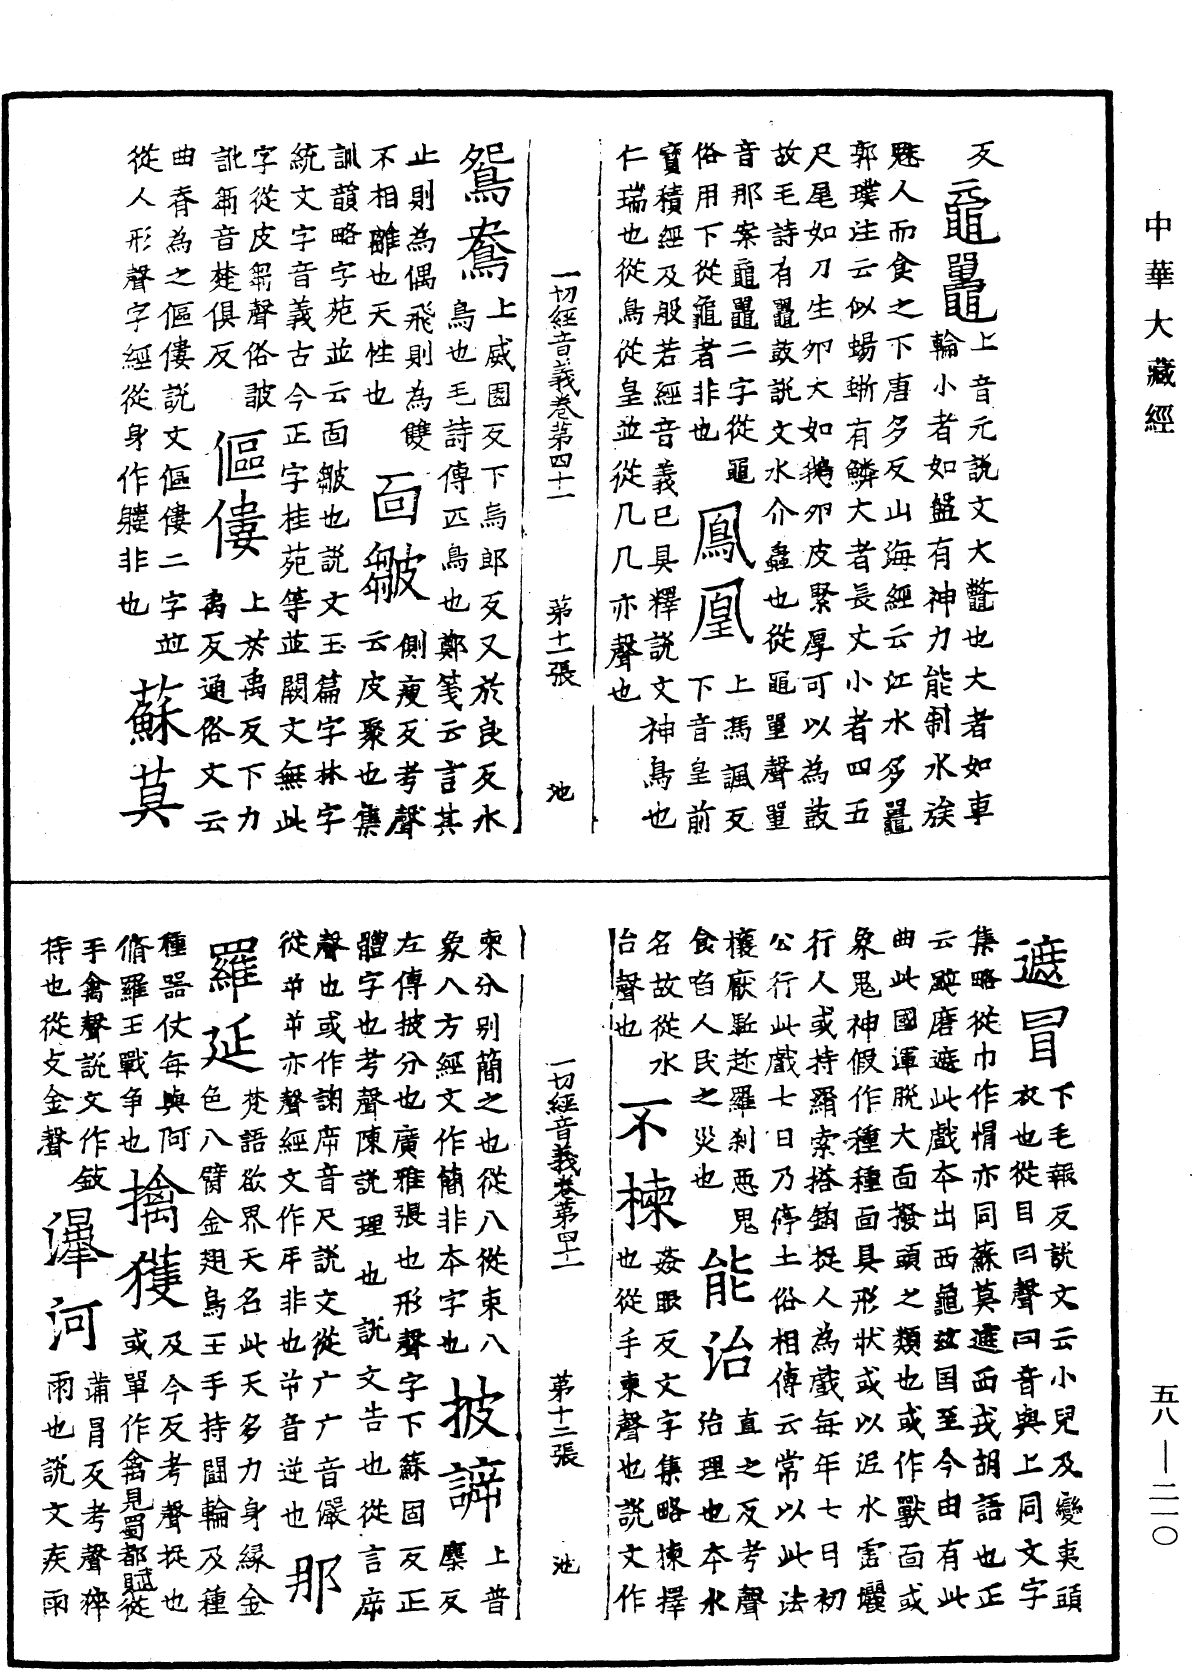 中華大藏經
反黿鼉上音元說文大鼈也大者如車
輪小者如盤有神力能制水族
魅人而食之下唐多反山海經云江水多鼉
郭璞注云似蜴蜥有鱗大者長丈小者四五
尺尾如刀生卵大如鵝卵皮緊厚可以為鼓
故毛詩有鼉鼓說文水介蟲也從黽單聲單
音那案黿鼉二字從黽
俗用下從龜者非也
鳳凰上馮諷反
下音皇前
寶積經及般若經音義已具釋說文神鳥也
仁瑞也從鳥從皇並從几几亦聲也
一切經音義卷第四十一 第十一張 池
鴛鴦上威園反下烏郎反又於良反水
鳥也毛詩傳匹鳥也鄭箋云言其
止則為偶飛則為雙
不相離也天性也
面皺側瘦反考聲
云皮聚也集
訓韻略字苑並云面皺也說文玉篇字林字
統文字音義古今正字桂苑等並闕文無此
字從皮芻聲俗皷
訛芻音楚俱反
傴僂上於禹反下力
禹反通俗文云
曲脊為之傴僂說文傴僂二字並
從人形聲字經從身作軁非也
蘇莫
遮冒下毛報反說文云小兒及蠻夷頭
衣也從目冃聲冃音與上同文字
集略從巾作帽亦同蘇莫遮西戎胡語也正
云颯磨遮此戲本出西龜茲国至今由有此
曲此國渾脫大面撥頭之類也或作獸面或
象鬼神假作種種面具形狀或以泥水霑灑
行人或持羂索搭鉤捉人為戲每年七月初
公行此戲七日乃停土俗相傳云常以此法
攘厭駈趂羅刹惡鬼
食啗人民之災也
能治直之反考聲
治理也本水
名故從水
台聲也
不揀姦眼反文字集略揀擇
也從手柬聲也說文作
一切經音義卷第四十一 第十二張 池
柬分別簡之也從八從束八
象八方經文作簡非本字也
披諦上普
縻反
左傳披分也廣雅張也形聲字下蘇固反正
體字也考聲陳說理也說文告也從言㡿
聲也或作訴㡿音尺說文從广广音儼
從屰屰亦聲經文作㡿非也屰音逆也
那
羅延梵語欲界天名此天多力身緣金
色八臂金翅鳥王手持鬪輪及種
種器仗每與阿
脩羅王戰爭也
擒獲及今反考聲捉也
或單作禽見蜀都賦從
手禽聲說文作㩒
持也從攴金聲
瀑河蒲冒反考聲猝
雨也說文疾雨
五八—二一〇